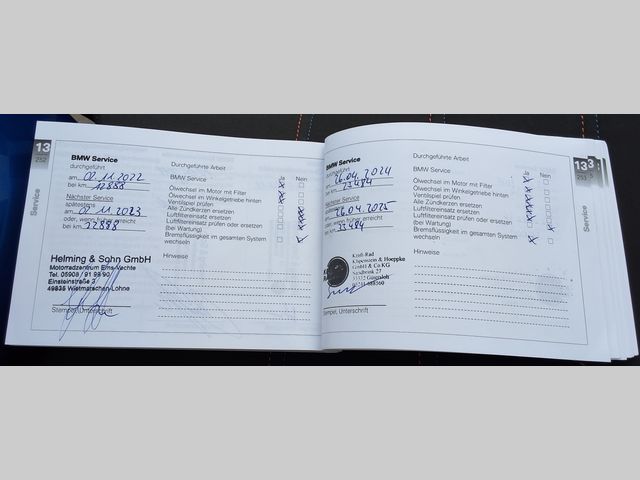 13
252
Service
BMW Service
durchgeführt
am 02.11.2022
bei km 12888
Nächster Service
spätestens
am 02.11.2023
oder, wenn früher erreicht
bei km 22888
Helming & Sohn GmbH
Motorradzentrum Ems-Vechte
Tel. 05908 / 91 99 90
Einsteinstraße 3
49835 Wietmarschen-Lohne
Stempel, Unterschrift
Durchgeführte Arbeit
BMW Service
Ja
Nein
Ölwechsel im Motor mit Filter
Ölwechsel im Winkelgetriebe hinten
Ventilspiel prüfen
Alle Zündkerzen ersetzen
Luftfiltereinsatz ersetzen
Luftfiltereinsatz prüfen oder ersetzen
(bei Wartung)
Bremsflüssigkeit im gesamten System
wechseln
Hinweise
BMW Service
durchgeführt
am 26.04.2024
bei km 23484
Nächster Service
spätestens
am 26.04.2025
oder, wenn früher erreicht
bei km 33484
Kraft-Rad
Klopenstein & Hoeppke
GmbH & Co KG
33332 Gütersloh
Stempel, Unterschrift
Durchgeführte Arbeit
BMW Service
Ja
Nein
Ölwechsel im Motor mit Filter
Ölwechsel im Winkelgetriebe hinten
Ventilspiel prüfen
Alle Zündkerzen ersetzen
Luftfiltereinsatz ersetzen
Luftfiltereinsatz prüfen oder ersetzen
(bei Wartung)
Bremsflüssigkeit im gesamten System
wechseln
Hinweise
13
253
Service